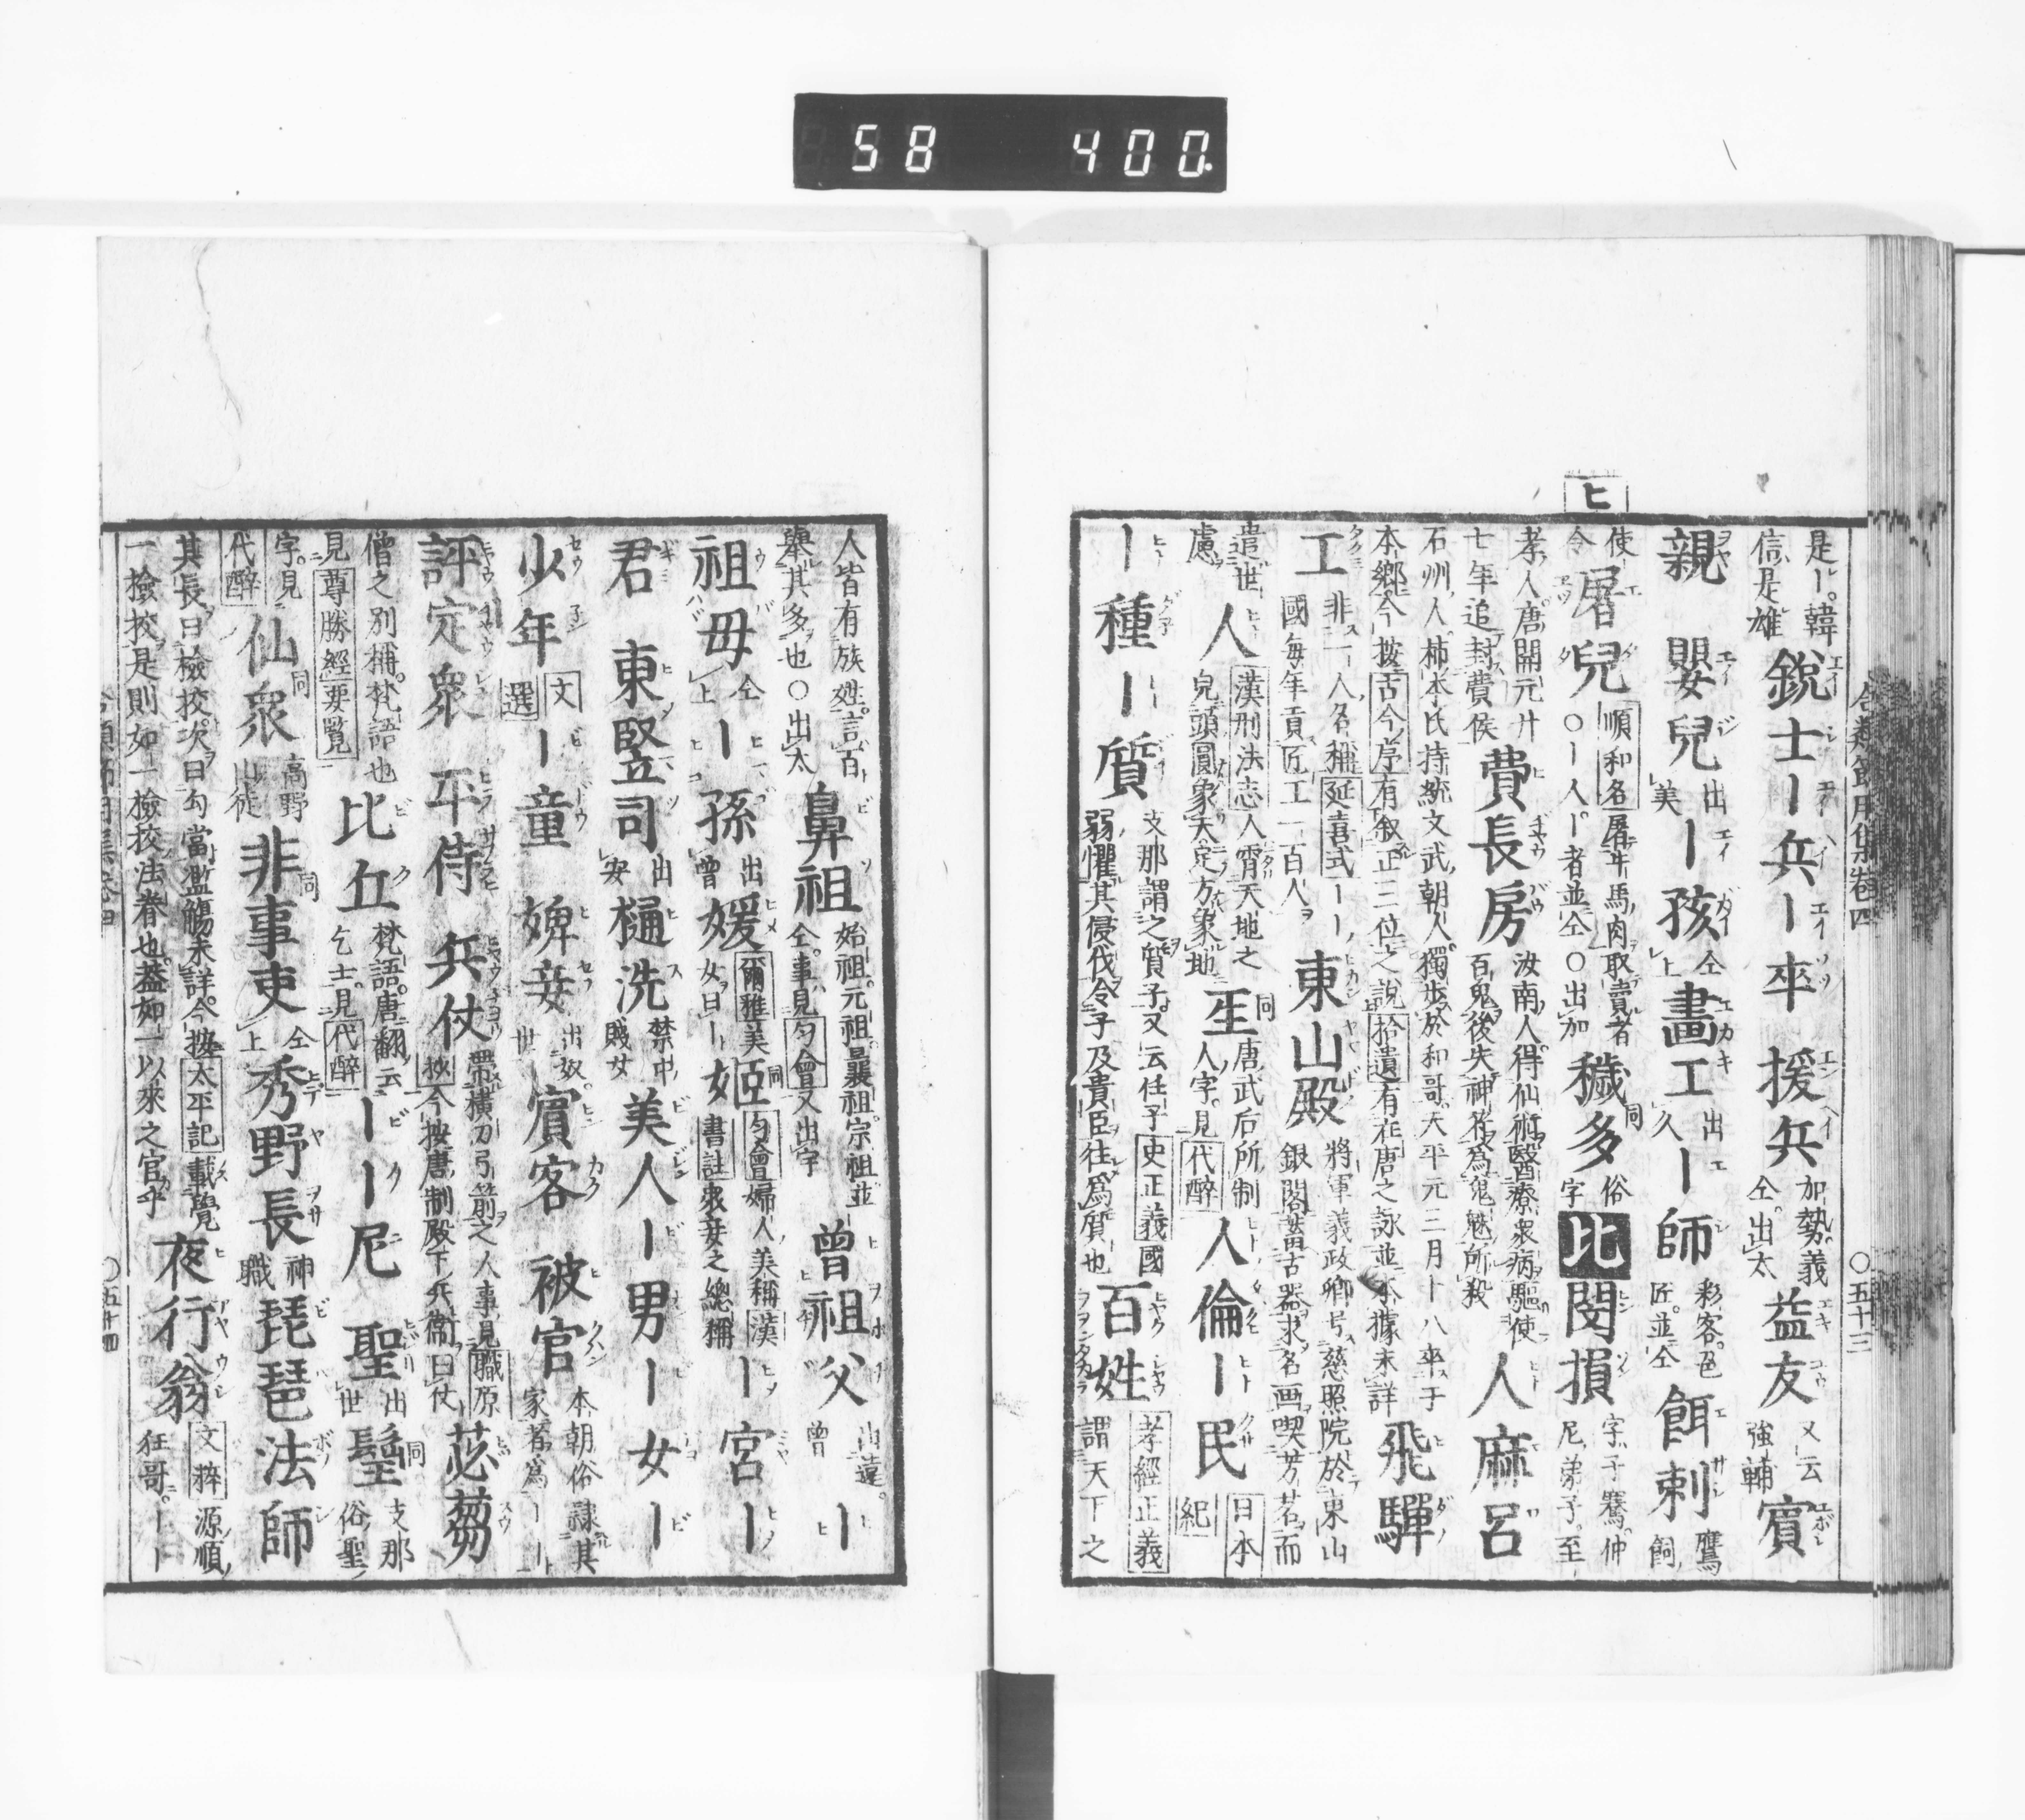 58 400
合類節用集卷四 〇五十三
ヒ
是ー。韓信是雄 銳士 ー兵 ー卒 援兵 加勢義仝。出太 益友 又云強輔 賓
親 嬰兒 出美 ー孩 仝上 畫工 出久 ー師 彩客。色匠。並仝 餌刺 鷹飼
使令 屠兒 順和名屠牛馬肉取賣者〇ー人。ー者並仝〇出加 穢多 同俗字 比 閔損 字子騫。仲尼弟子。至
孝人唐開元廿七年追封費侯 費長房 汝南人得仙術醫療衆病驅使百鬼後失神符為鬼魅所殺 人麻呂
石州人。柿本氏持統文武朝人獨步於和哥天平元三月十八卒于本鄉今按古今序有叙正三位之說拾遺有在唐之詠並本據未詳 飛驒
工 非一人名稱延喜式ーー國每年貢匠工一百人 東山殿 將軍義政卿号慈照院於東山銀閣蓄古器求名画喫芳茗而
遣世慮 人 漢刑法志人宵天地之皃頭圓象天足方象地 𤯔 同唐武后所制人字。見代醉 人倫 ー民 日本紀
ー種 ー質 支那謂之質子。又云任子史正義國弱懼其侵伐令子及貴臣往為質也 百姓 孝經正義謂天下之
人皆有族姓言百擧其多也〇出太 鼻祖 始祖。元祖。曩祖。宗祖並仝。事見匀會又出字 曾祖父 曾 ー
祖母 仝上 ー孫 出曾 媛 爾雅美女曰ー 姬 同匀會婦人美稱漢書註衆妾之總稱 ー宮 ー
君 東豎司 出安 樋洗 禁中賤女 美人 ー男 ー女 ー
少年 文選 ー童 婢妾 出奴。世 賓客 被官 本朝俗隷其家者為ーー
評定衆 平侍 兵仗 帶橫刀弓箭之人事見職原抄今按唐制殿下兵衛曰仗 苾蒭
僧之別稱。梵語也見尊勝經要覽 比丘 梵語。唐翻云乞士。見代醉 ーー尼 聖 出世 𩬎 同支那俗聖
字。見代醉 仙衆 同高野山徒 非事吏 同仝上 秀野長 神職 琵琶法師
其長曰檢挍。次曰勾當濫觴未詳。今按太平記載覺一撿挍是則如一檢挍法眷也。蓋如一以來之官乎 夜行翁 文粹源順狂哥。ーー
〇五十四